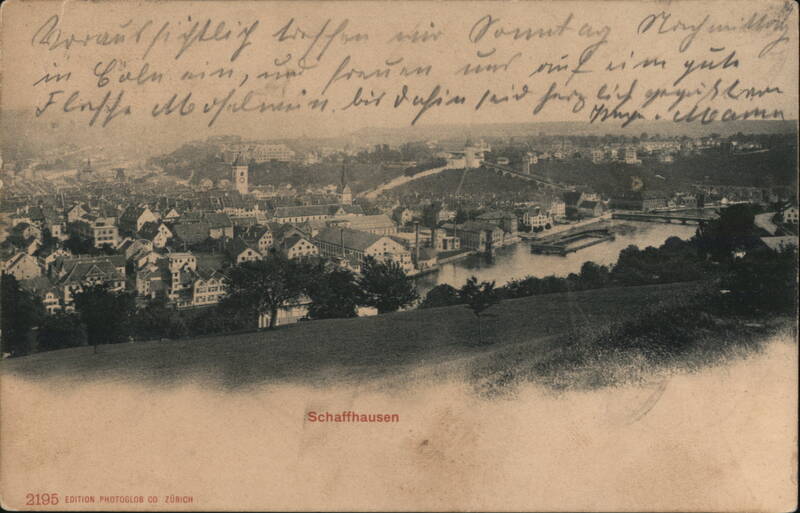 Voraussichtlich treffen wir Sonntag Nachmittag
in Cöln ein, und freuen uns auf ein gute
Flasche Moselwein, bis dahin seid herzlich gegrüsst von
Mama
Schaffhausen
2195 EDITION PHOTOGLOB CO ZÜRICH